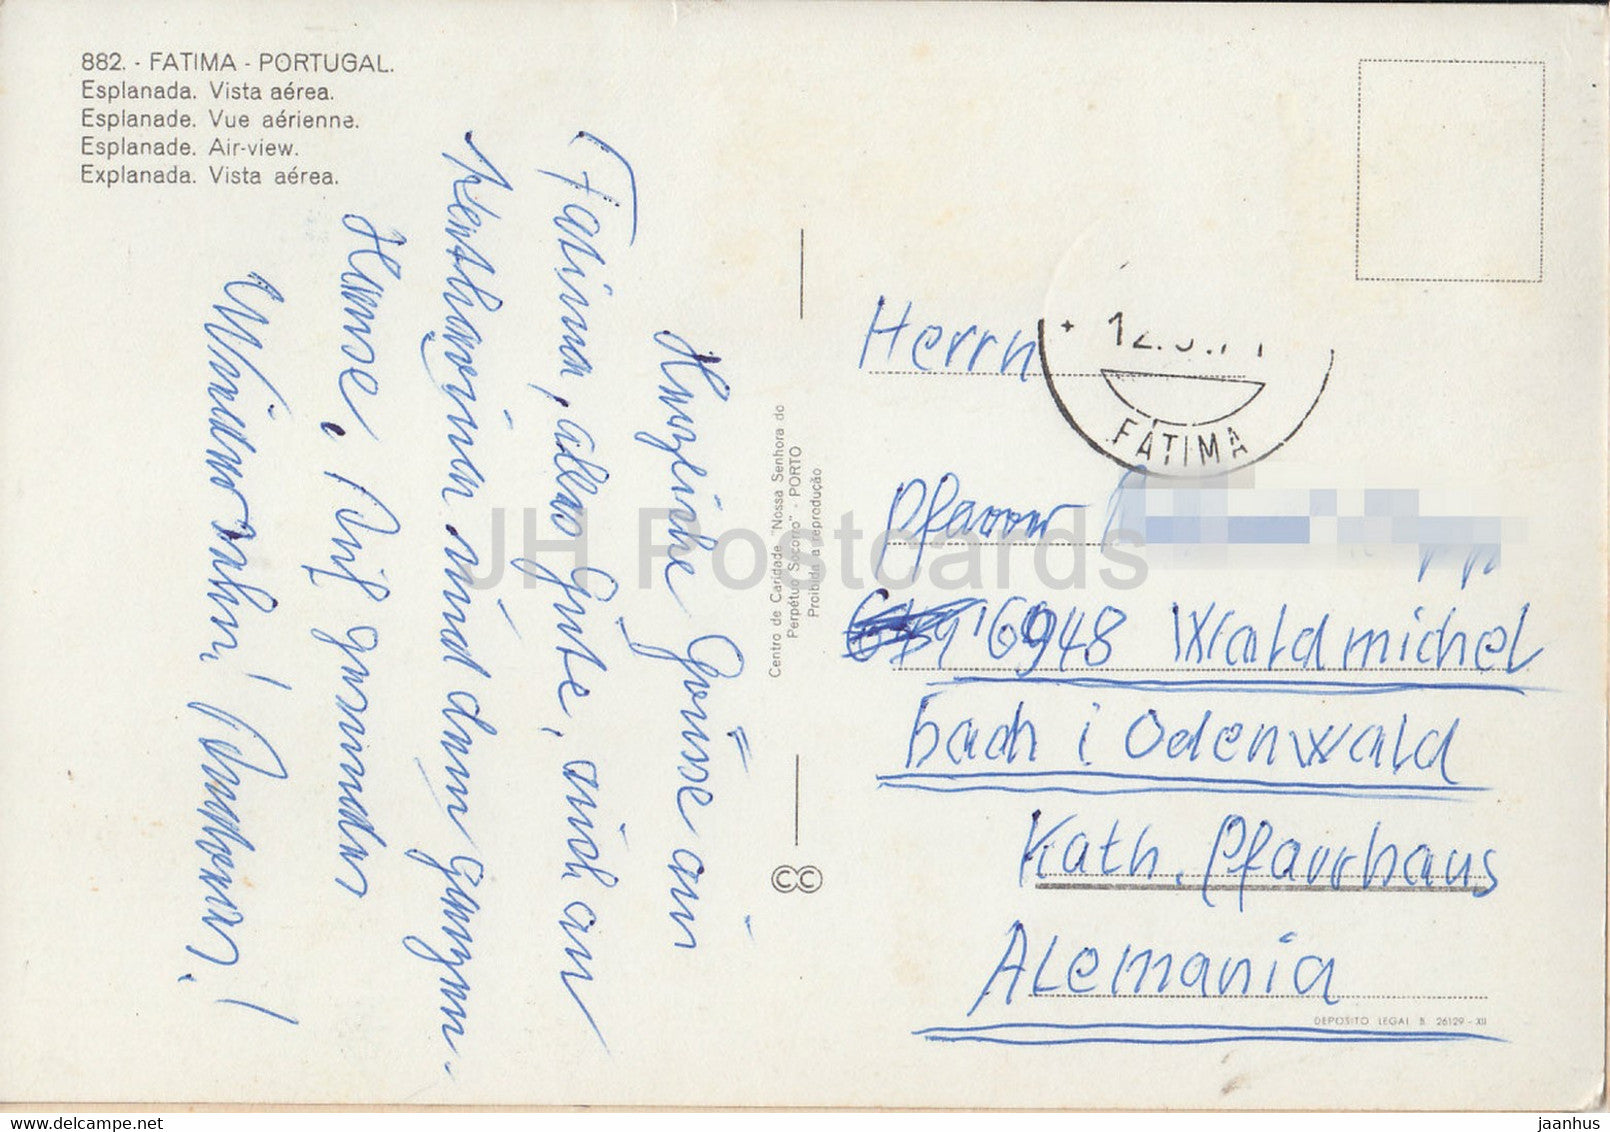 882. - FATIMA - PORTUGAL.
Esplanada. Vista aérea.
Esplanade. Vue aérienne.
Esplanade. Air-view.
Explanada. Vista aérea.
Herzliche Grüsse aus
Fatima, alles Gute, auch an
Katharina und dem ganzen
Hause. Auf gesundes
Wiedersehn!
Centro de Caridade "Nossa Senhora do
Perpétuo Socorro" - PORTO
Proibida a reprodução
CC
FÁTIMA
Herrn
Pfarrer
6948 Waldmichel
bach i Odenwald
Kath. Pfarrhaus
Alemania
DEPOSITO LEGAL B. 26129 - XII
JH Postcards
www.delcampe.net
jaanhus